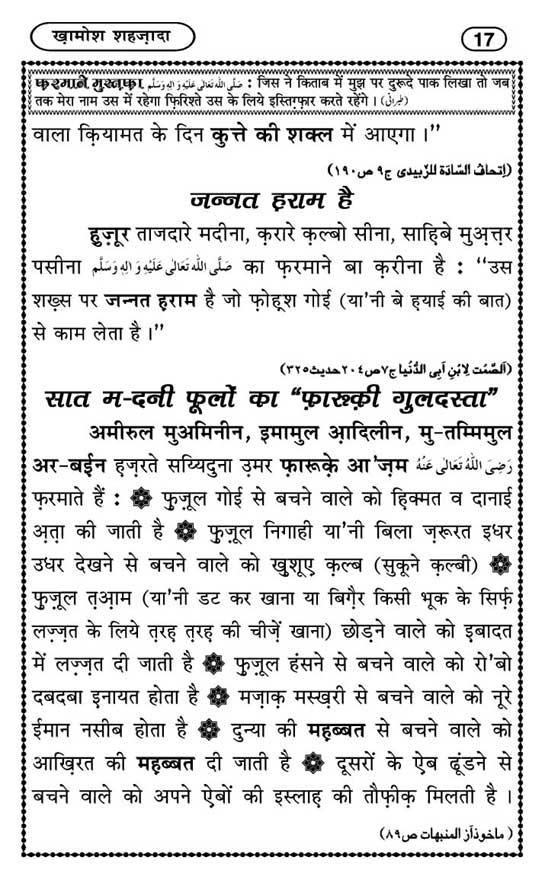 ख़ामोश शहज़ादा
17
फ़रमाने मुस्तफ़ा صَلَّى اللهُ تَعَالٰى عَلَيْهِ وَاٰلِهٖ وَسَلَّم : जिस ने किताब में मुझ पर दुरूदे पाक लिखा तो जब
तक मेरा नाम उस में रहेगा फ़िरिश्ते उस के लिये इस्तिग़्फ़ार करते रहेंगे । (طبرانی)
वाला क़ियामत के दिन कुत्ते की शक्ल में आएगा ।’’
(اِتحافُ السّادَة للزَّبیدی ج۹ ص۱۹۰)
जन्नत ह़राम है
हुज़ूर ताजदारे मदीना, क़रारे क़ल्बो सीना, साह़िबे मुअ़त्तर
पसीना صَلَّى اللهُ تَعَالٰى عَلَيْهِ وَاٰلِهٖ وَسَلَّم का फ़रमाने बा क़रीना है : ‘‘उस
शख़्स पर जन्नत ह़राम है जो फ़ोह़्श गोई (या’नी बे ह़याई की बात)
से काम लेता है ।’’
(اَلصَّمْت لِابْنِ اَبِی الدُّنْیا ج۷ ص۲۰٤ حدیث۳۲۵)
सात म-दनी फूलों का “फ़ारूक़ी गुलदस्ता”
अमीरुल मुअमिनीन, इमामुल आ़दिलीन, मु-तम्मिमुल
अर-बई़न ह़ज़रते सय्यिदुना उ़मर फ़ारूक़े आ’ज़म رَضِیَ اللهُ تَعَالٰی عَنْهُ
फ़रमाते हैं : ۞ फ़ुज़ूल गोई से बचने वाले को ह़िक्मत व दानाई
अ़त़ा की जाती है ۞ फ़ुज़ूल निगाही या’नी बिला ज़रूरत इधर
उधर देखने से बचने वाले को ख़ुशूए़ क़ल्ब (सुकूने क़ल्बी) ۞
फ़ुज़ूल त़आ़म (या’नी डट कर खाना या बिग़ैर किसी भूक के सिर्फ़
लज़्ज़त के लिये त़रह़ त़रह़ की चीज़ें खाना) छोड़ने वाले को इ़बादत
में लज़्ज़त दी जाती है ۞ फ़ुज़ूल हंसने से बचने वाले को रो’बो
दबदबा इ़नायत होता है ۞ मज़ाक़ मस्ख़री से बचने वाले को नूरे
ईमान नसीब होता है ۞ दुन्या की मह़ब्बत से बचने वाले को
आख़िरत की मह़ब्बत दी जाती है ۞ दूसरों के ऐ़ब ढूंडने से
बचने वाले को अपने ऐ़बों की इस्लाह़ की तौफ़ीक़ मिलती है ।
(ماخوذاَز المنبهات ص۸۹)